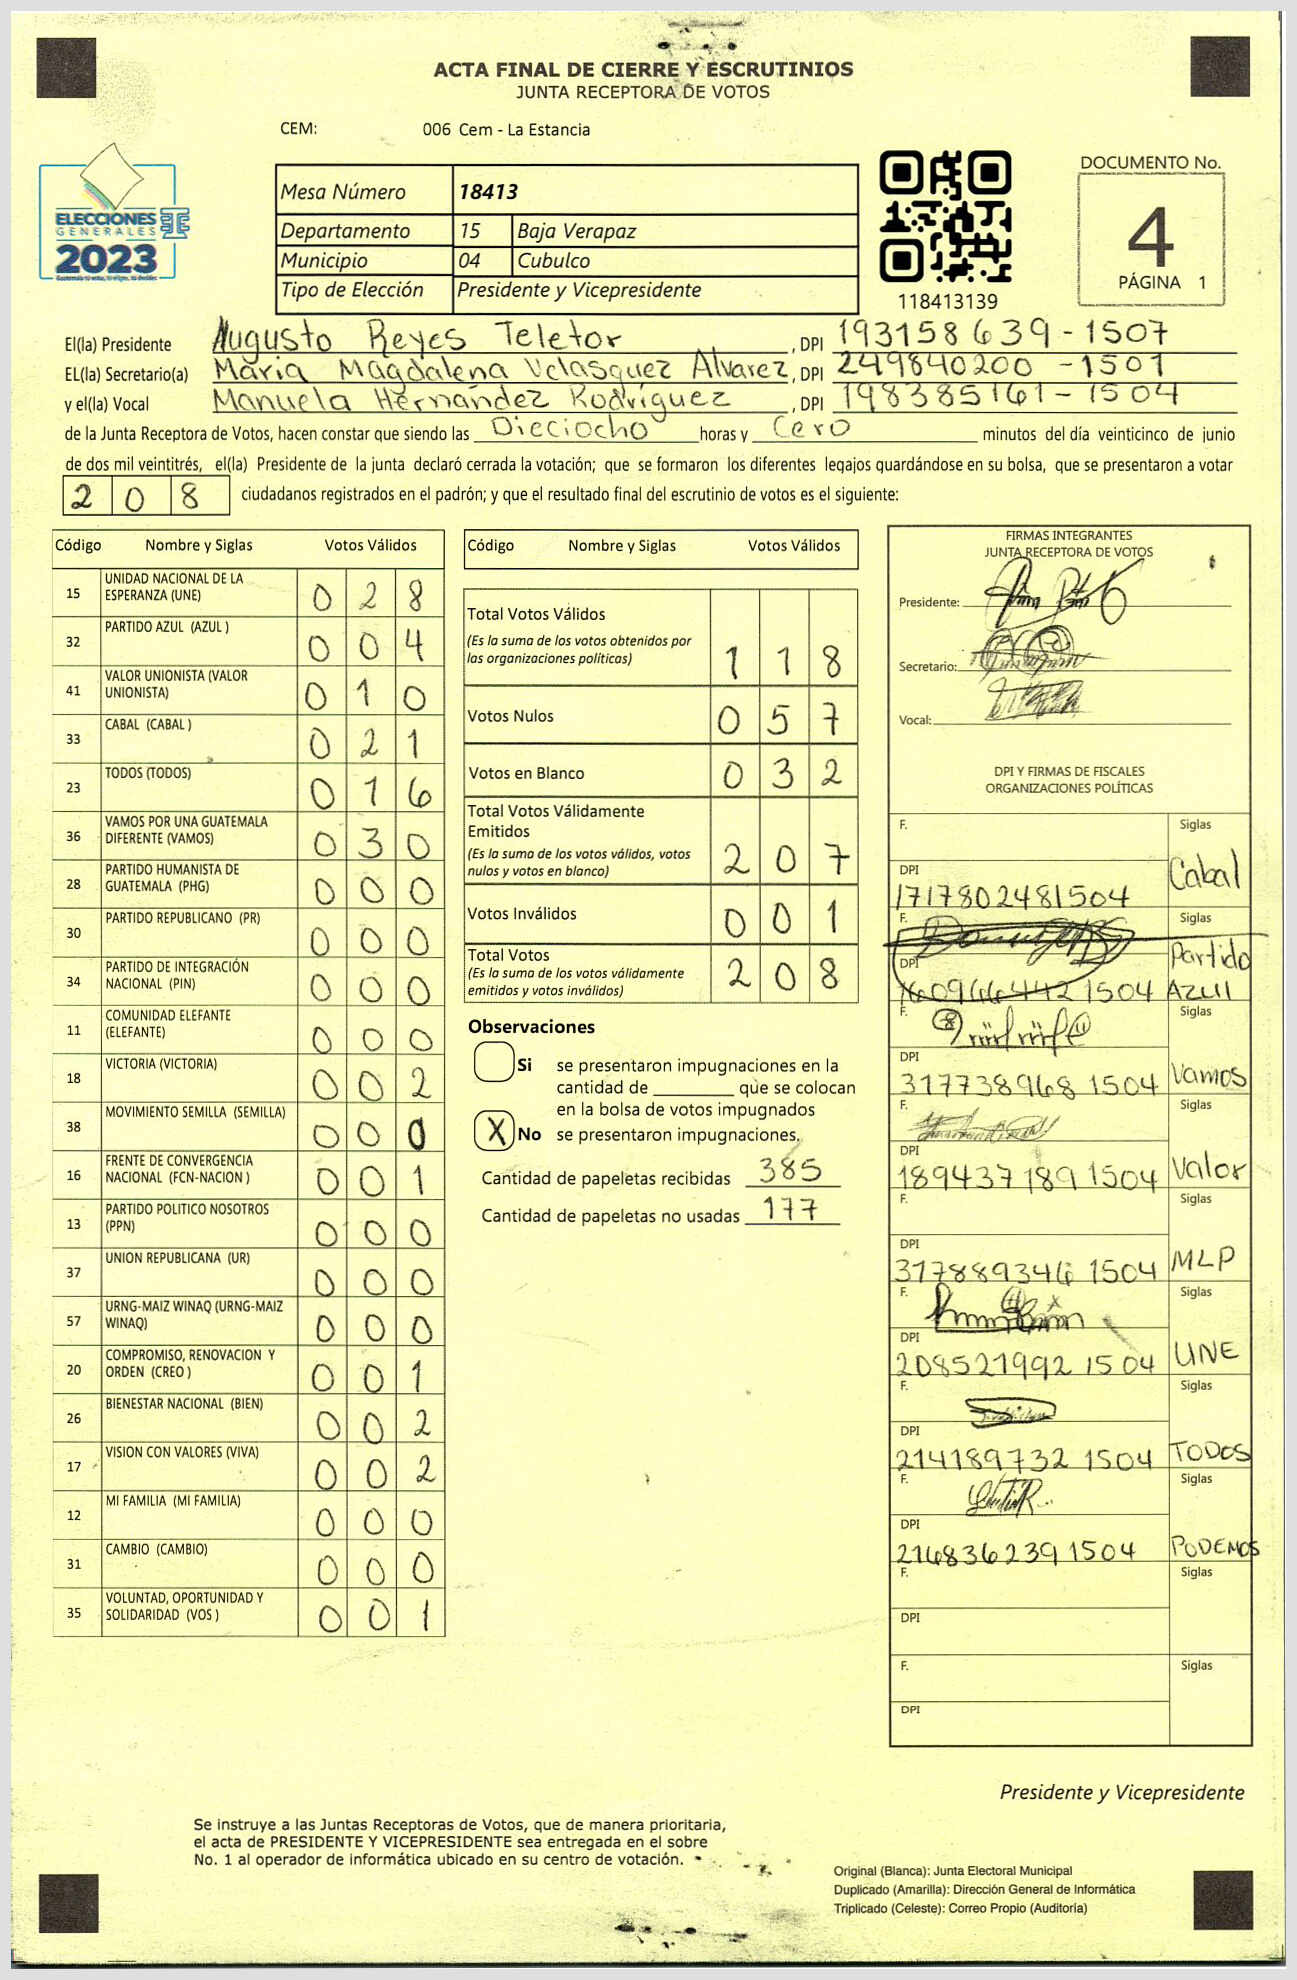 ACTA FINAL DE CIERRE Y ESCRUTINIOS
JUNTA RECEPTORA DE VOTOS
CEM: 006 Cem - La Estancia
ELECCIONES
GENERALES
2023
Mesa Número 18413
Departamento 15 Baja Verapaz
Municipio 04 Cubulco
Tipo de Elección Presidente y Vicepresidente
118413139
DOCUMENTO No.
4
PÁGINA 1
El(la) Presidente Augusto Reyes Teletor, DPI 193158639-1507
EL(la) Secretario(a) Maria Magdalena Velasquez Alvarez, DPI 249840200-1501
y el(la) Vocal Manuela Hernández Rodríguez, DPI 198385161-1504
de la Junta Receptora de Votos, hacen constar que siendo las Dieciocho horas y Cero minutos del día veinticinco de junio
de dos mil veintitrés, el(la) Presidente de la junta declaró cerrada la votación; que se formaron los diferentes legajos guardándose en su bolsa, que se presentaron a votar
208 ciudadanos registrados en el padrón; y que el resultado final del escrutinio de votos es el siguiente:
Código Nombre y Siglas Votos Válidos
15 UNIDAD NACIONAL DE LA ESPERANZA (UNE) 0 2 8
32 PARTIDO AZUL (AZUL ) 0 0 4
41 VALOR UNIONISTA (VALOR UNIONISTA) 0 1 0
33 CABAL (CABAL ) 0 2 1
23 TODOS (TODOS) 0 1 6
36 VAMOS POR UNA GUATEMALA DIFERENTE (VAMOS) 0 3 0
28 PARTIDO HUMANISTA DE GUATEMALA (PHG) 0 0 0
30 PARTIDO REPUBLICANO (PR) 0 0 0
34 PARTIDO DE INTEGRACIÓN NACIONAL (PIN) 0 0 0
11 COMUNIDAD ELEFANTE (ELEFANTE) 0 0 0
18 VICTORIA (VICTORIA) 0 0 2
38 MOVIMIENTO SEMILLA (SEMILLA) 0 0 0
16 FRENTE DE CONVERGENCIA NACIONAL (FCN-NACION ) 0 0 1
13 PARTIDO POLITICO NOSOTROS (PPN) 0 0 0
37 UNION REPUBLICANA (UR) 0 0 0
57 URNG-MAIZ WINAQ (URNG-MAIZ WINAQ) 0 0 0
20 COMPROMISO, RENOVACION Y ORDEN (CREO ) 0 0 1
26 BIENESTAR NACIONAL (BIEN) 0 0 2
17 VISION CON VALORES (VIVA) 0 0 2
12 MI FAMILIA (MI FAMILIA) 0 0 0
31 CAMBIO (CAMBIO) 0 0 0
35 VOLUNTAD, OPORTUNIDAD Y SOLIDARIDAD (VOS ) 0 0 1
Código Nombre y Siglas Votos Válidos
Total Votos Válidos
(Es la suma de los votos obtenidos por
las organizaciones políticas) 1 1 8
Votos Nulos 0 5 7
Votos en Blanco 0 3 2
Total Votos Válidamente
Emitidos
(Es la suma de los votos válidos, votos
nulos y votos en blanco) 2 0 7
Votos Inválidos 0 0 1
Total Votos
(Es la suma de los votos válidamente
emitidos y votos inválidos) 2 0 8
Observaciones
Si se presentaron impugnaciones en la
cantidad de ________ que se colocan
en la bolsa de votos impugnados
X No se presentaron impugnaciones.
Cantidad de papeletas recibidas 385
Cantidad de papeletas no usadas 177
FIRMAS INTEGRANTES
JUNTA RECEPTORA DE VOTOS
Presidente:
Secretario:
Vocal:
DPI Y FIRMAS DE FISCALES
ORGANIZACIONES POLÍTICAS
F. Siglas
DPI 171780248 1504 Cabal
F. Siglas
DPI 1504 Partido Azul
F. Siglas
DPI 317738968 1504 Vamos
F. Siglas
DPI 189437189 1504 Valor
F. Siglas
DPI 317889346 1504 MLP
F. Siglas
DPI 208521992 1504 UNE
F. Siglas
DPI 214189732 1504 TODOS
F. Siglas
DPI 216836239 1504 PODEMOS
F. Siglas
DPI
F. Siglas
DPI
Presidente y Vicepresidente
Se instruye a las Juntas Receptoras de Votos, que de manera prioritaria,
el acta de PRESIDENTE Y VICEPRESIDENTE sea entregada en el sobre
No. 1 al operador de informática ubicado en su centro de votación.
Original (Blanca): Junta Electoral Municipal
Duplicado (Amarilla): Dirección General de Informática
Triplicado (Celeste): Correo Propio (Auditoría)